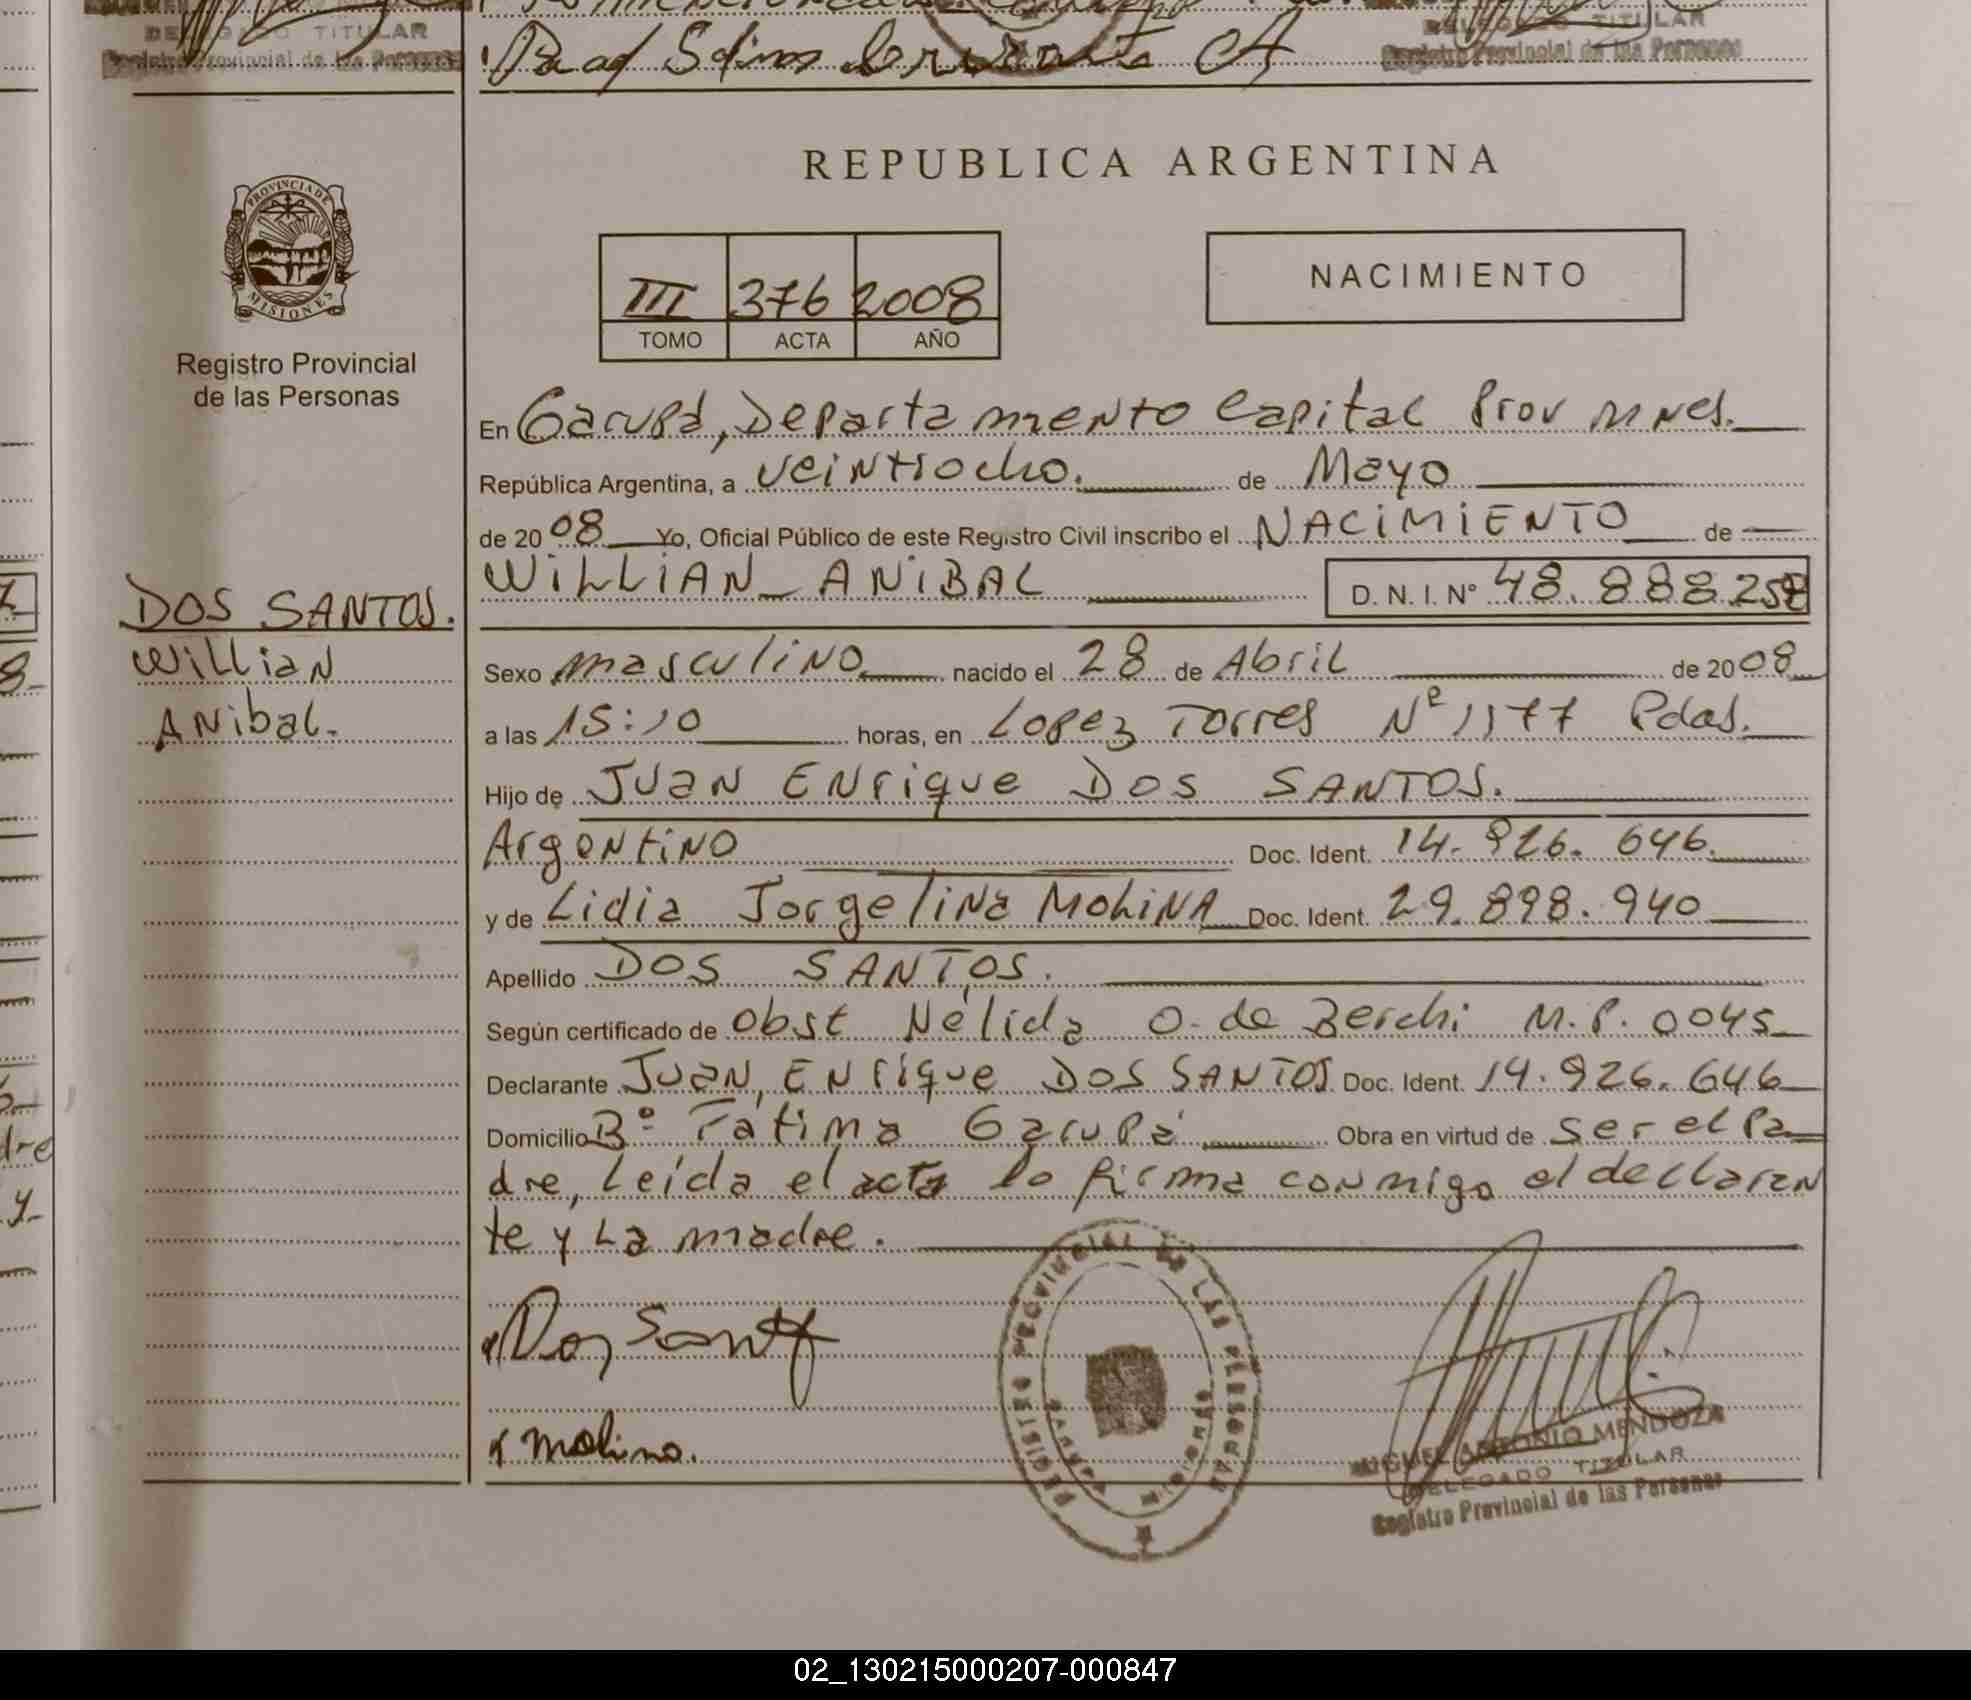 DELEGADO TITULAR
Registro Provincial de las Personas
DELEGADO TITULAR
Registro Provincial de las Personas
REPUBLICA ARGENTINA
PROVINCIA DE
MISIONES
Registro Provincial
de las Personas
III 376 2008
TOMO ACTA AÑO
NACIMIENTO
En Garupá, Departamento Capital Prov Mnes.
República Argentina, a veintiocho. de Mayo
de 2008 Yo, Oficial Público de este Registro Civil inscribo el NACIMIENTO de
WILLIAN ANIBAL D. N. I. Nº 48.888.258
DOS SANTOS.
Willian
Anibal.
Sexo masculino nacido el 28 de Abril de 2008
a las 15:10 horas, en Lopez Torres Nº 1177 Pdas.
Hijo de Juan Enrique Dos SANTOS.
Argentino Doc. Ident. 14.926.646.
y de Lidia Jorgelina Molina Doc. Ident. 29.898.940
Apellido DOS SANTOS.
Según certificado de obst Nélida O. de Berchi M.P. 0045
Declarante Juan Enrique Dos SANTOS Doc. Ident. 14.926.646
Domicilio Bº Fátima Garupá Obra en virtud de ser el Pa
dre, Leída el acta la firma conmigo el declaran
te y La madre.
Dos Santos
Molina.
REGISTRO PROVINCIAL DE LAS PERSONAS
GARUPA
MISIONES
MIGUEL ANTONIO MENDOZA
DELEGADO TITULAR
Registro Provincial de las Personas
02_130215000207-000847